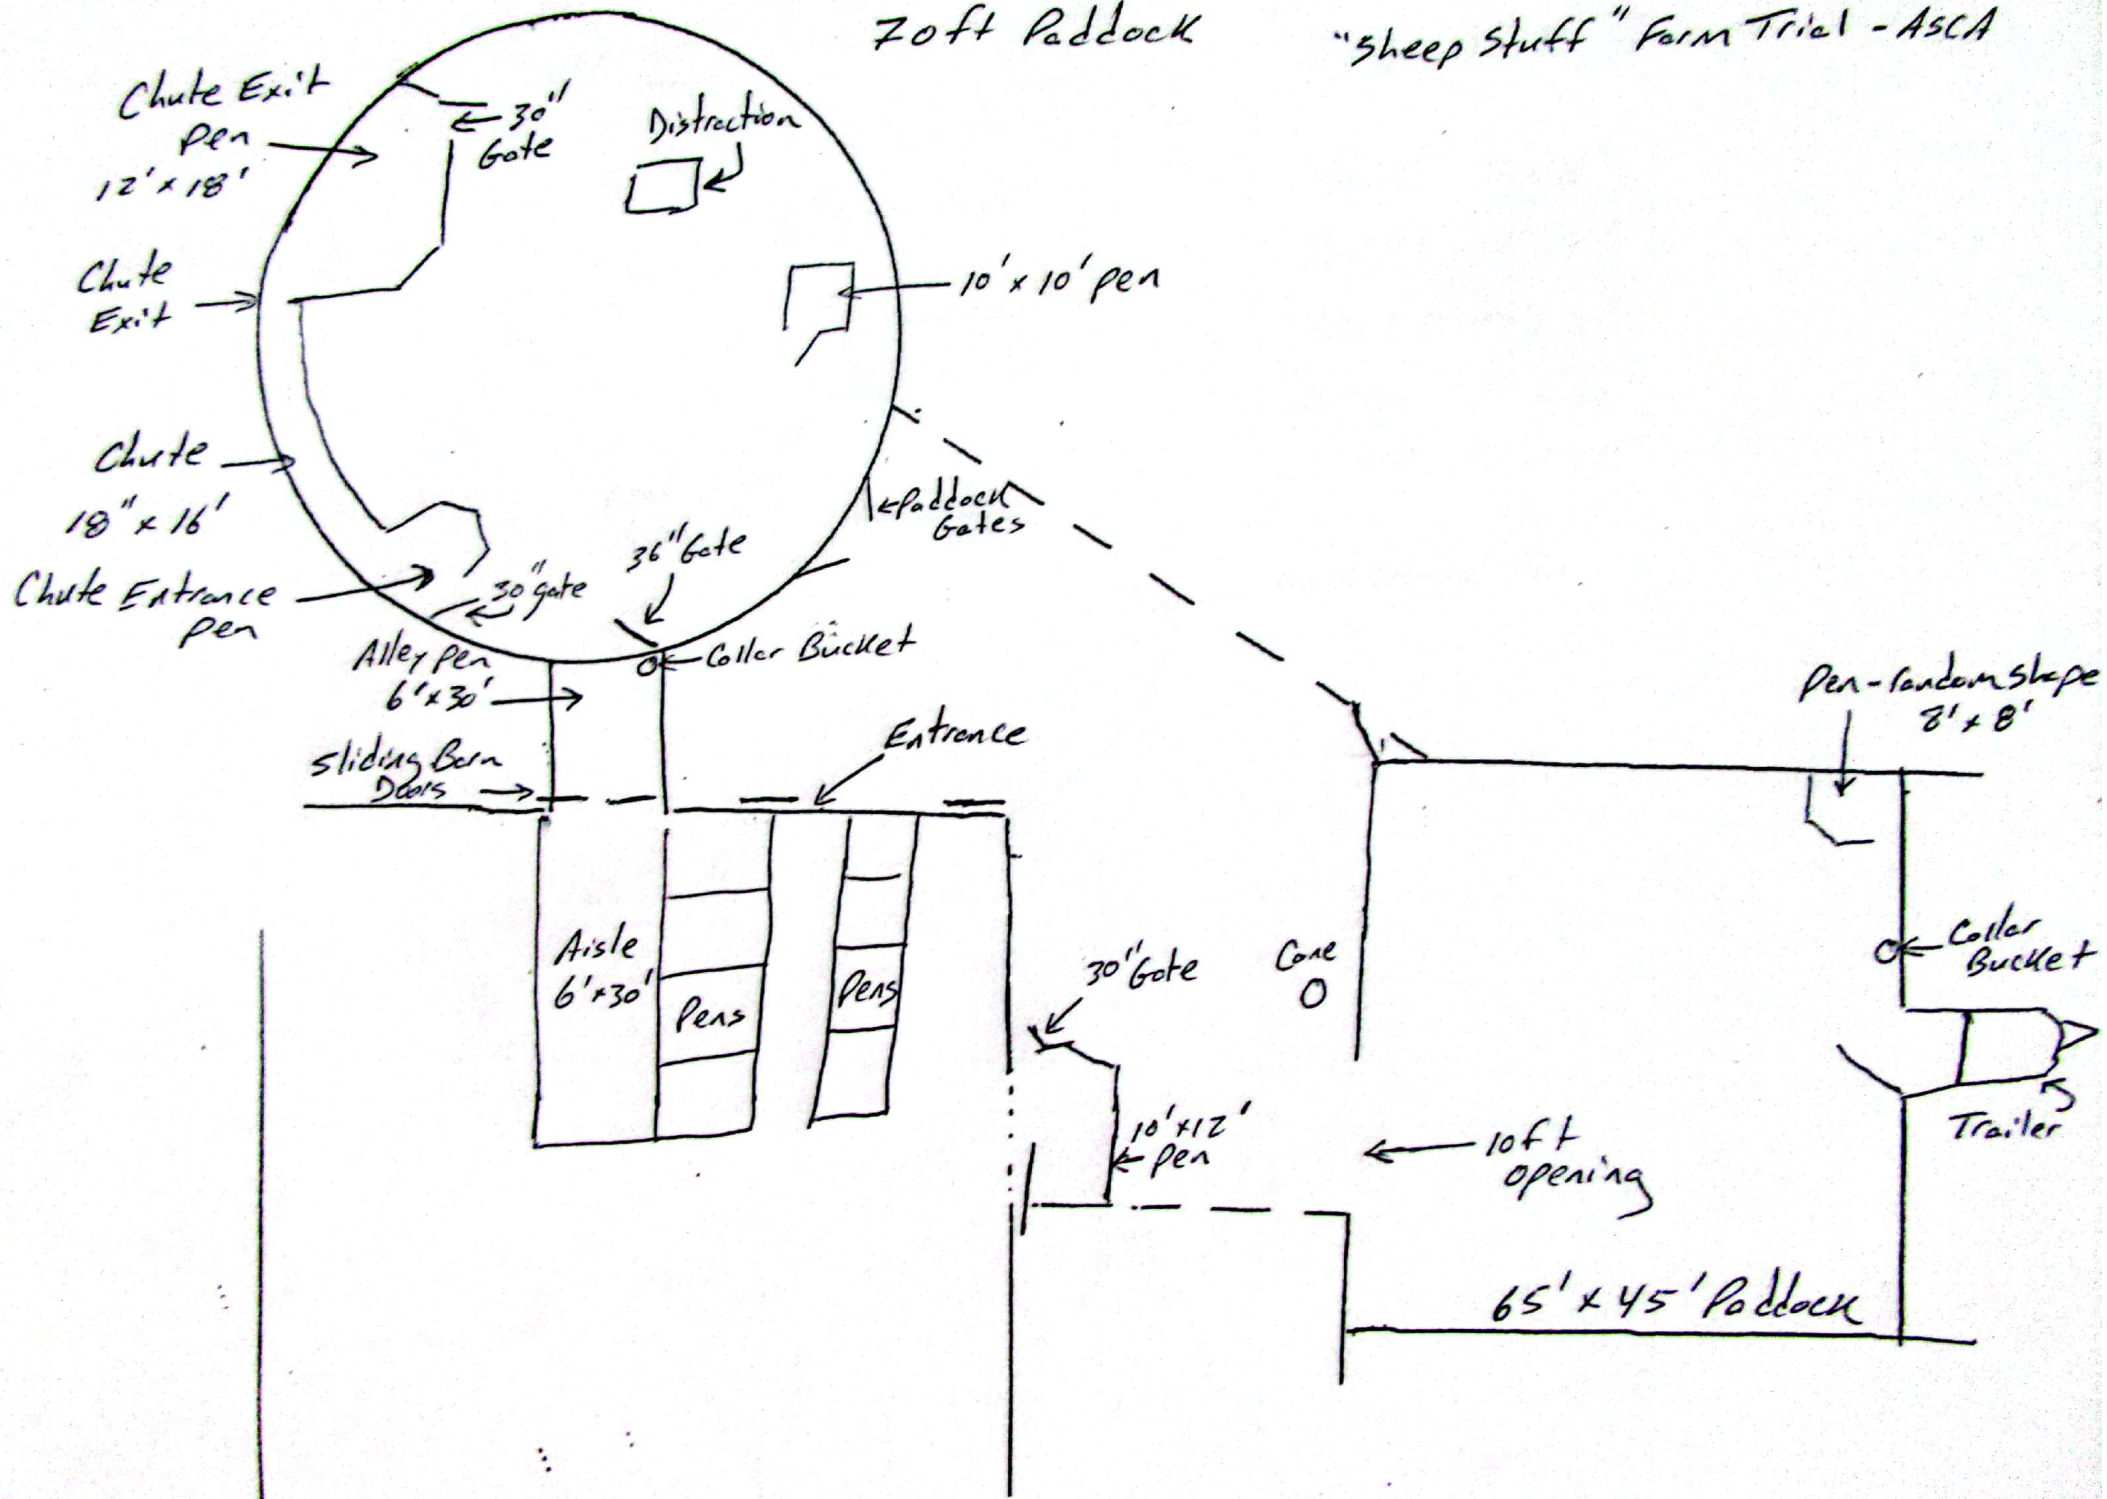 70ft Paddock
"Sheep Stuff" Farm Trial - ASCA
Chute Exit
Pen
12' x 18'
30"
Gate
Distraction
Chute
Exit
10' x 10' pen
Chute
18" x 16'
Paddock
Gates
36" Gate
Chute Entrance
Pen
30" gate
Alley pen
6' x 30'
Collar Bucket
Entrance
Sliding Barn
Doors
Pen-random shape
8' x 8'
Aisle
6' x 30'
Pens
Pens
30" Gate
Cone
Collar
Bucket
10' x 12'
Pen
10ft
opening
Trailer
65' x 45' Paddock